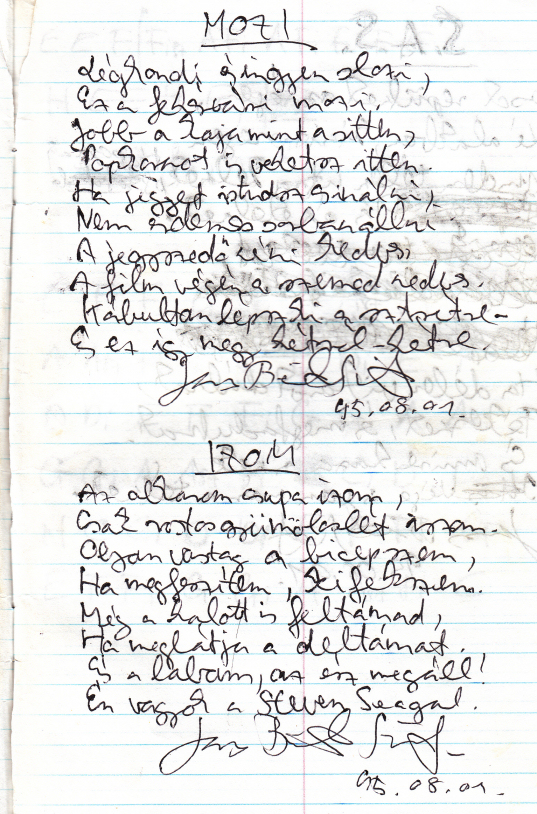 MOZI
Légkondi és ingyen slozi,
Ez a fehérvári mozi.
Jobb a kaja mint a sitten,
Popkornot is vehetsz itten.
Ha jegyet tudsz csinálni,
Nem érdemes sorbanállni.
A jegyszedő néni kedves,
A film végén a szemed nedves.
Kábultan lépsz ki a
És ez így megy hétről-hétre.
95.08.01.
IZOM
Az alkarom csupa izom,
Csak rostos gyümölcslét iszom.
Olyan vastag a bicepszem,
Ha megfeszítem, kifekszem.
Még a halott is feltámad,
Ha meglátja a deltámat.
És a lábam, az ész megáll!
Én vagyok a Steven Seagal.
95.08.01.